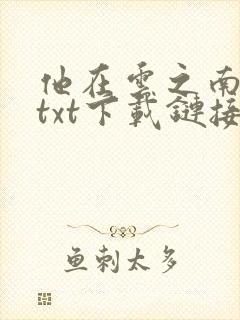 他在雲之南
txt下載鏈接
鱼刺太多